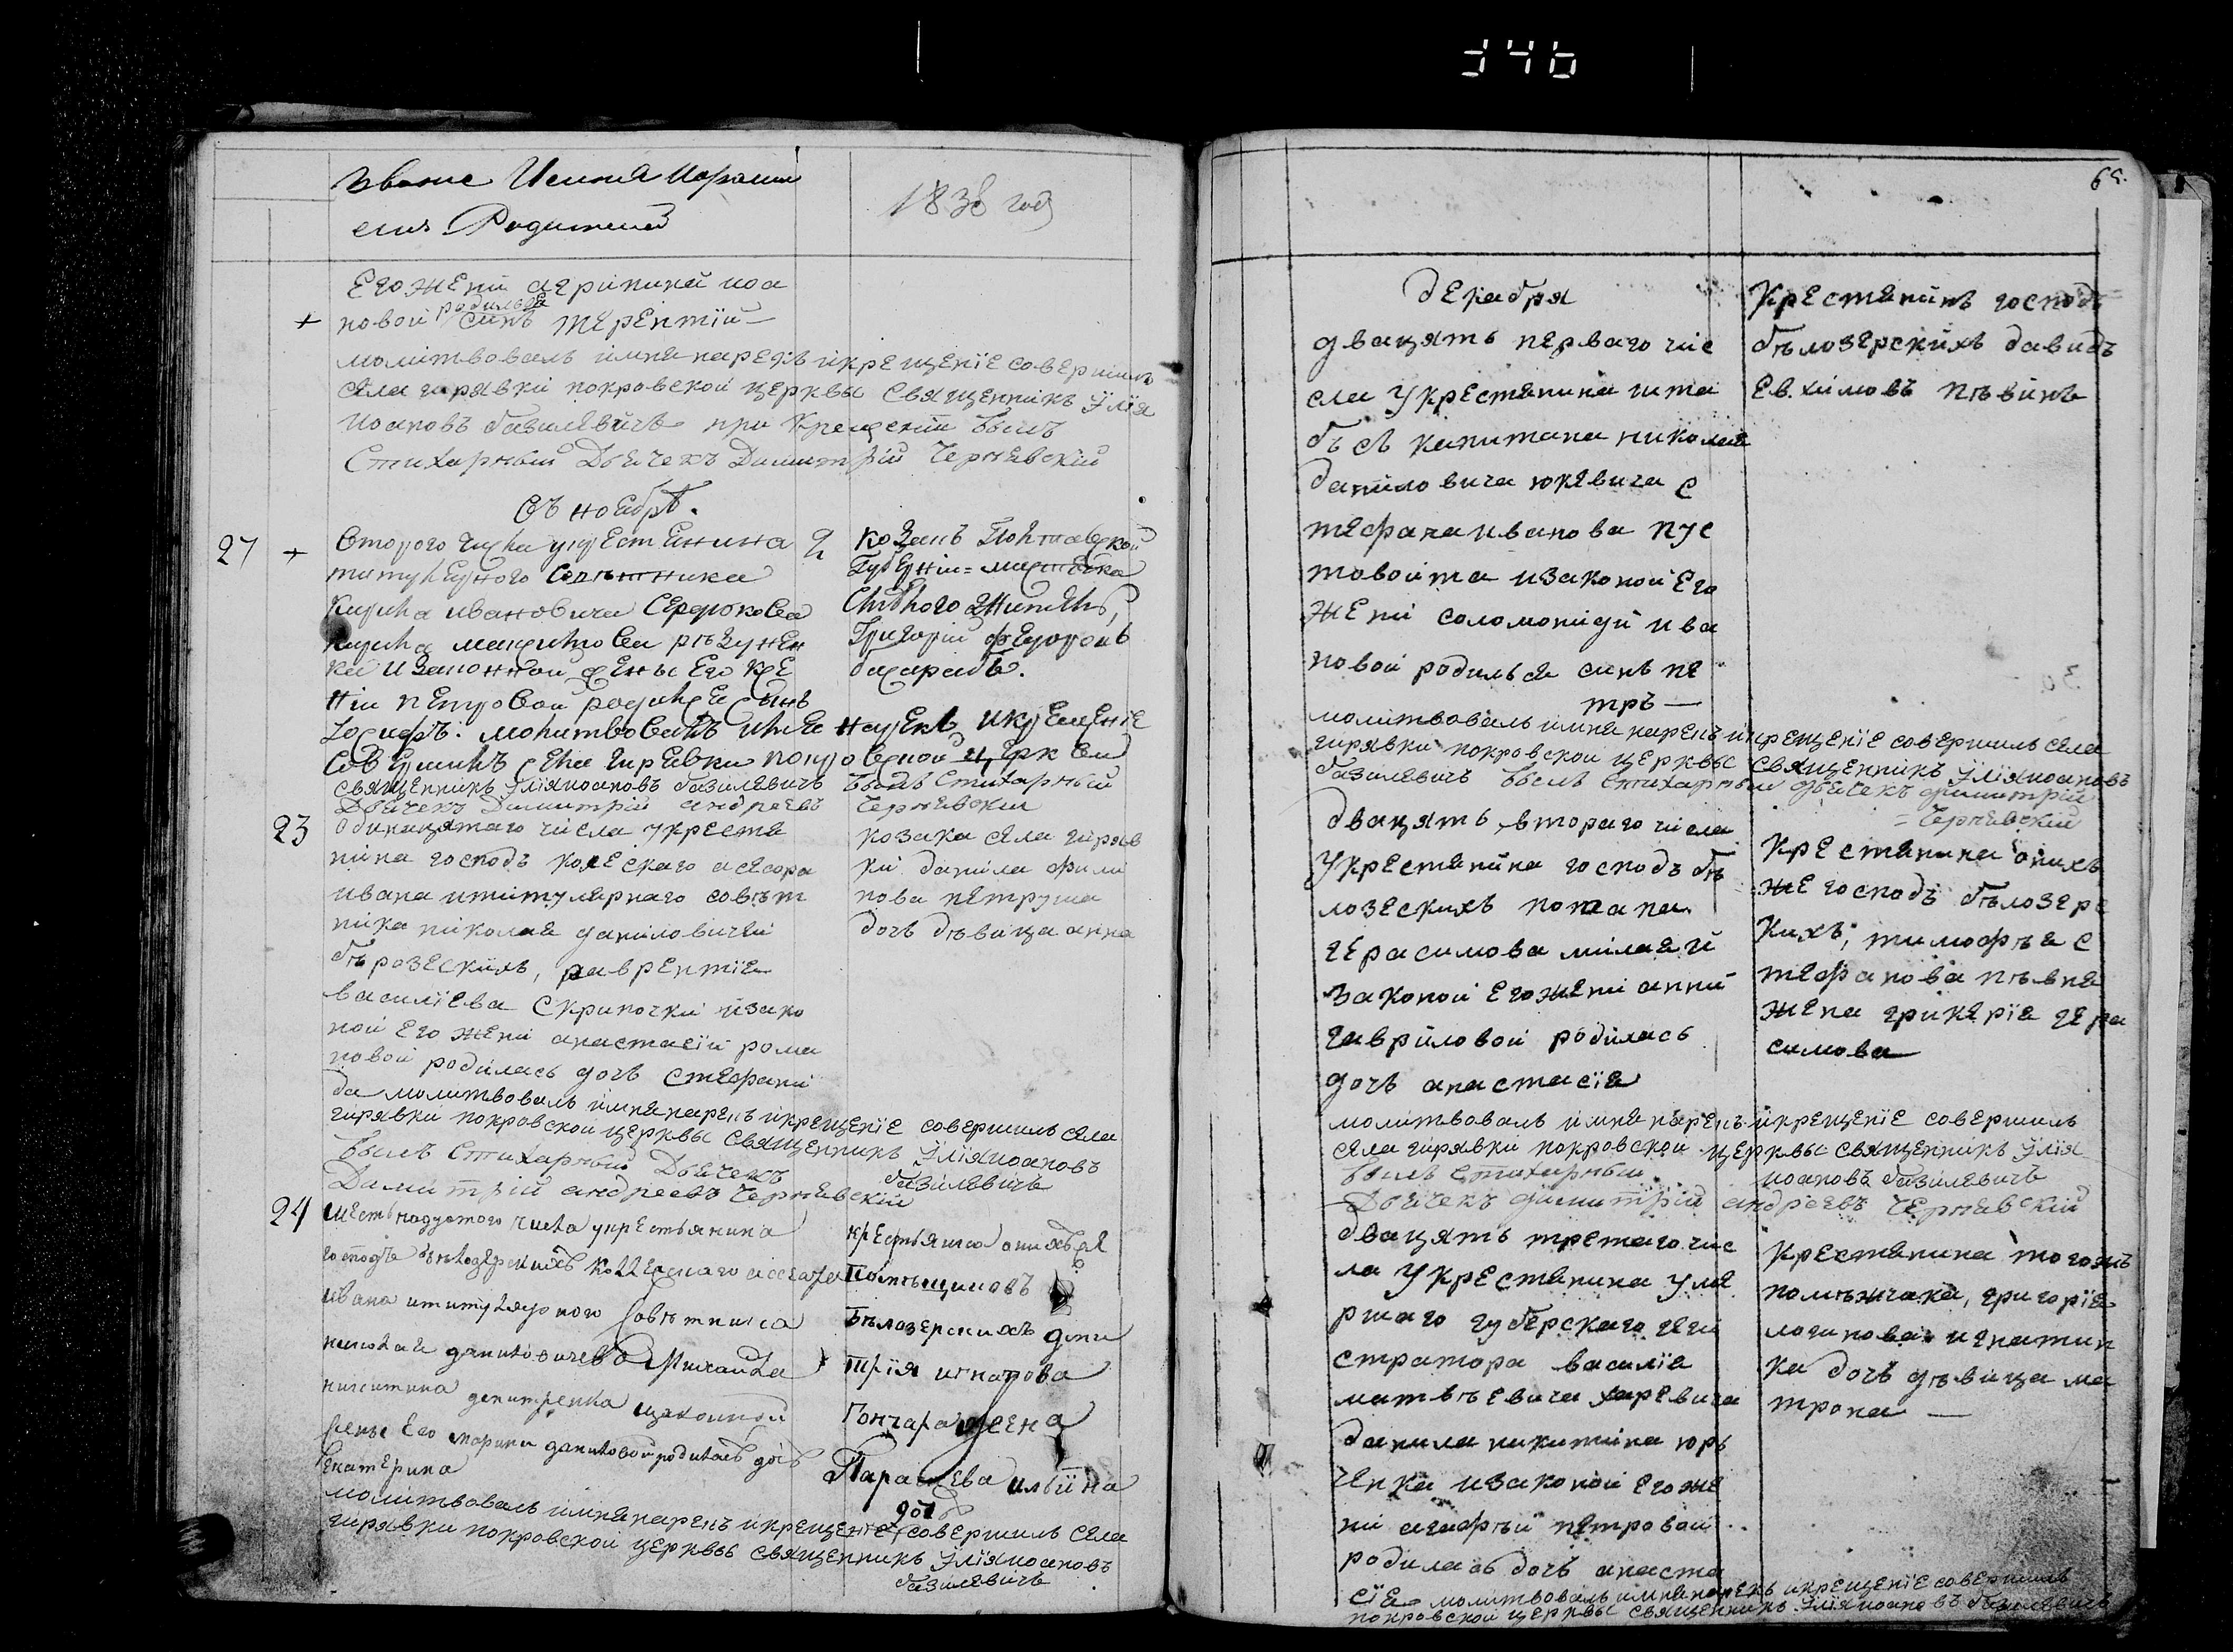 346
звание Имена
Родителей
1838 год
Его жени агріпини иоа
родился
новой синъ терентій
+
молітвовалъ імня нарекъ ікрещеніе совершилъ
села гирявкі покровской церквы священникъ Улія
иоановъ базилевичъ при Крещеніи былъ
Стихарный Дьячекъ Димитрій Чернявскій
Съ ноября.
27 +
Второго числа укрестянина
титулярного Советника
Кирила ивановича Сердюкова
Кирила
ки изаконной жены его
ніи петровой родился сынъ
Іосифъ: молитвовалъ имя нарекъ икрещеніе
Совершилъ села гирявки покровской церкви
священникъ Уліяиоановъ базилевичъ былъ Стихарный
Дьячекъ Димитрій андреевъ Чернявскій
2
козакъ Полтавской
Губерніи местечка
жытель,
Григорій федоровъ
23
одинацятаго числа укрестя
нина господъ колескаго асесора
ивана ититулярнаго совѣт
ника николая даниловичей
бѣлозескіхъ, лаврентія
василіева скрипочкі ізако
ной его жени анастасіи рома
новой родилась дочъ стефани
да молитвовалъ імня нарекъ ікрещеніе совершилъ села
гирявки покровской церквы священникъ Уліяиоановъ
базилевичъ
былъ Стихарный Дьячекъ
Димитрій андреевъ Чернявскій
козака села гиряв
ки данила фили
пова петруша
дочъ дѣвица анна
24
шестьнадцатого числа укрестьянина
господъ бѣлозерскихъ коллежскаго ассесора
ивана ититулярного Совѣтника
николая даниловичевъ Михаила
никитина демитренка изаконной
жены Его марини даниловой родилась дочъ
Екатерина
молитвовалъ імня нарекъ ікрещеніе совершилъ села
гирявки покровской церквы священникъ Уліяиоановъ
базилевичъ
крестьянина онихъ же
Помѣщиковъ
Бѣлозерскихъ дми
трія игнатова
Гончара жена
Параскева ильіина
дочъ
65.
декабря
двацять перваго чис
сла укрестянина шта
бъ съ капитана николая
даниловича юкевича с
тефана иванова пус
товойта изаконой его
жені соломониди ива
новой родилься синъ пе
тръ —
молитвовалъ імня нарекъ ікрещеніе совершилъ села
гирявки покровской церквы священникъ Уліяиоановъ
базилевичъ былъ Стихарный дьячекъ димитрій
= Чернявскій
Крестянинъ господъ
бѣлозерскіхъ давидъ
Евхимовъ пѣвінь
двацять втораго числа
укрестянина господъ бѣ
лозескихъ потапа
герасимова мілая и
законой его жені анни
гавриловой родилась
дочъ анастасіа
молитвовалъ імня нарекъ ікрещеніе совершилъ
села гирявки покровской церквы священникъ Улія
иоановъ базилевичъ
былъ стихарный
Дьячекъ димитрій андреевъ Чернявскій
Крестянина онихъ
же господъ бѣлозерс
кихъ, тимофѣя с
тефанова пѣвня
жена гликеріа гера
симова
двацять третаго чис
ла укрестянина уме
ршаго губерскаго реги
стратора василіа
матвѣевича харевича
данила никитина юрь
ченка изаконой его же
ни агафѣи петровой
родилась дочъ анаста
сіа молитвовалъ імня нарекъ ікрещеніе совершилъ
покровской церквы священникъ Уліяиоановъ базилевичъ
Крестянина тогожъ
помѣжчика, григоріа
логинова игнатин
ка дочъ дѣвица ма
трона —